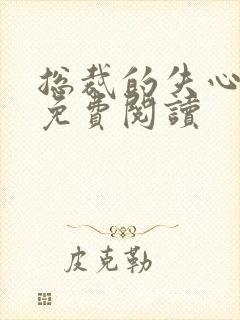 总裁的失心
免費閱讀
皮克勒